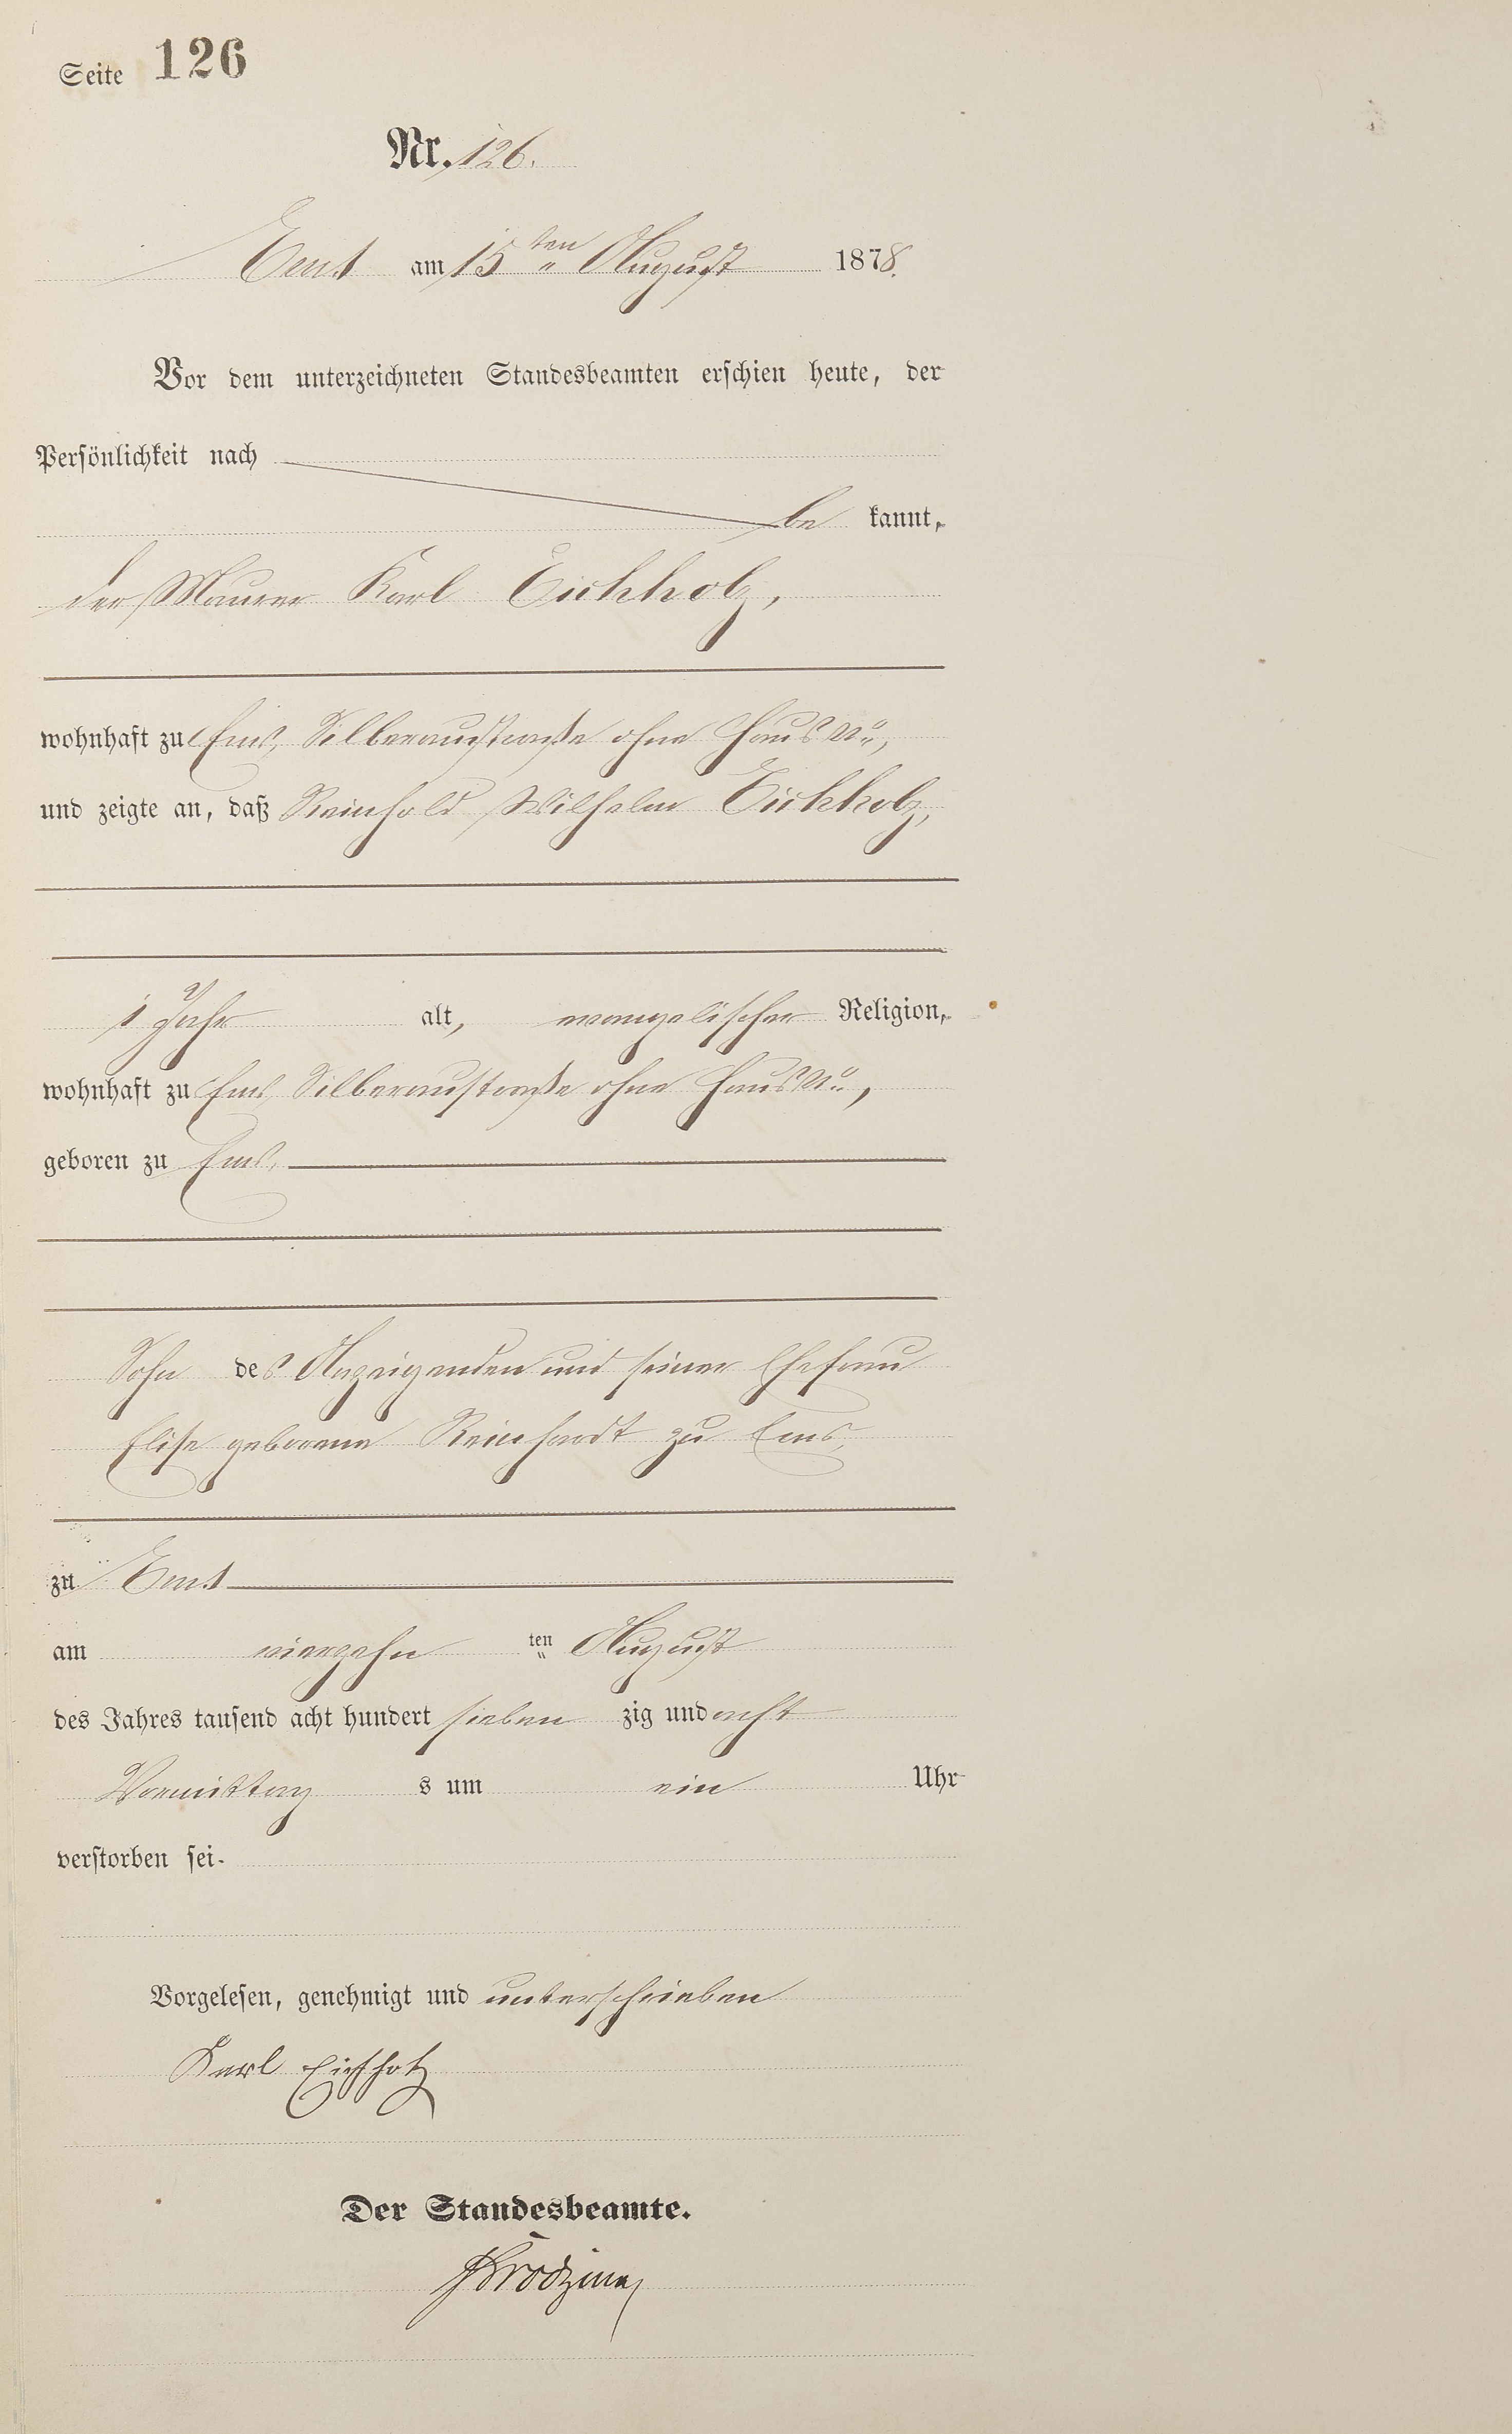 Seite 126
Nr. 126.
Ems am 15ten August 1878.
Vor dem unterzeichneten Standesbeamten erschien heute, der
Persönlichkeit nach
be kannt,
der Maurer Karl Eichholz,
wohnhaft zu Ems, Silberaustraße ohne Haus No,
und zeigte an, daß Reinhold Wilhelm Eichholz,
1 Jahr alt, evangelischer Religion,
wohnhaft zu Ems, Silberaustraße ohne Haus No,
geboren zu Ems,
Sohn des Anzeigenden und seiner Ehefrau
Elise geborene Reinhardt zu Ems,
zu Ems
am vierzehn ten August
des Jahres tausend acht hundert sieben zig und acht
Vormittag s um ein Uhr
verstorben sei.
Vorgelesen, genehmigt und unterschrieben
Karl Eichholz
Der Standesbeamte.